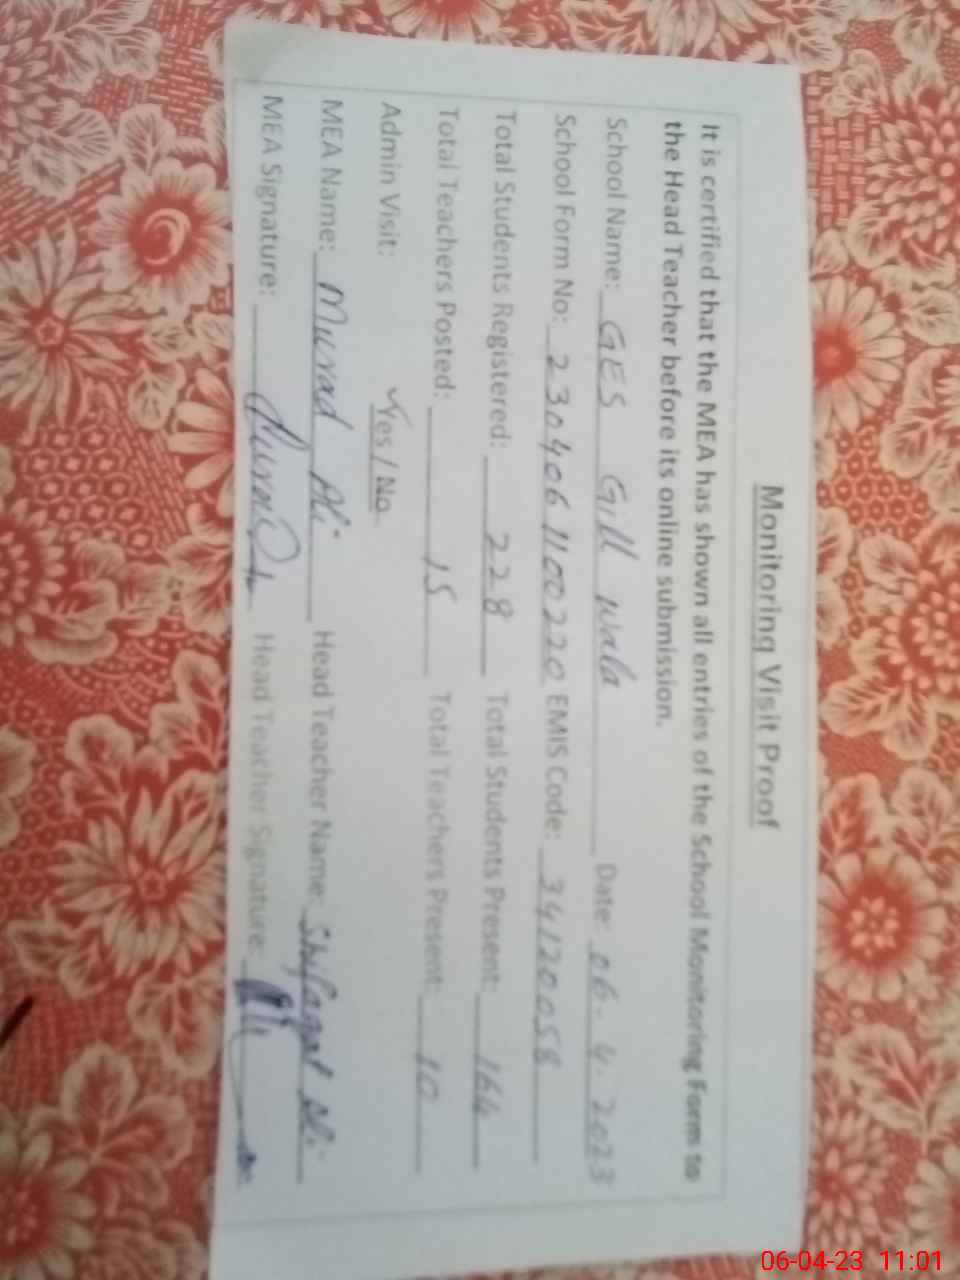 Monitoring Visit Proof
It is certified that the MEA has shown all entries of the School Monitoring Form to
the Head Teacher before its online submission.
School Name: GES Gill Wala Date: 06-4-2023
School Form No: 2304061100220 EMIS Code: 34120058
Total Students Registered: 228 Total Students Present: 164
Total Teachers Posted: 15 Total Teachers Present: 10
Admin Visit: ✓Yes / No
MEA Name: Murad Ali Head Teacher Name: Shifaqat Al.
MEA Signature: Head Teacher Signature:
06-04-23 11:01